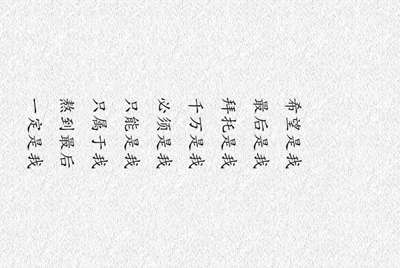 希望是我
最后是我
拜托是我
千万是我
必须是我
只能是我
只属于我
熬到最后
一定是我